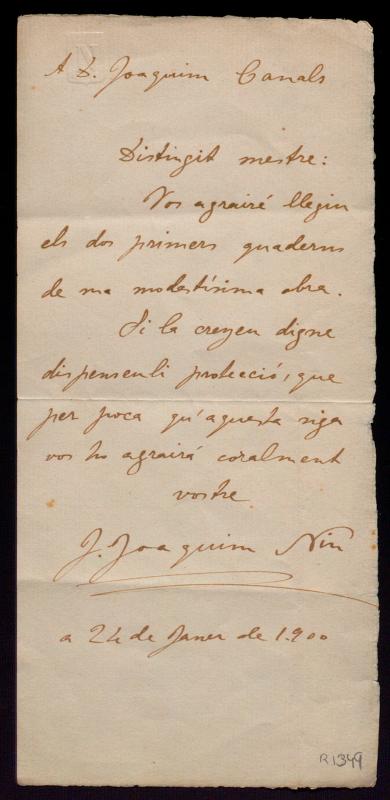 A D. Joaquim Canals
Distingit mestre:
Vos agrairé llegiu
els dos primers quaderns
de ma modestísima obra.
Si la creyeu digne
dispenseuli protecció, que
per poca qu'aquesta siga
vos ho agrairá coralment
vostre
J. Joaquim Nin
a 24 de Janer de 1.900
R.1349